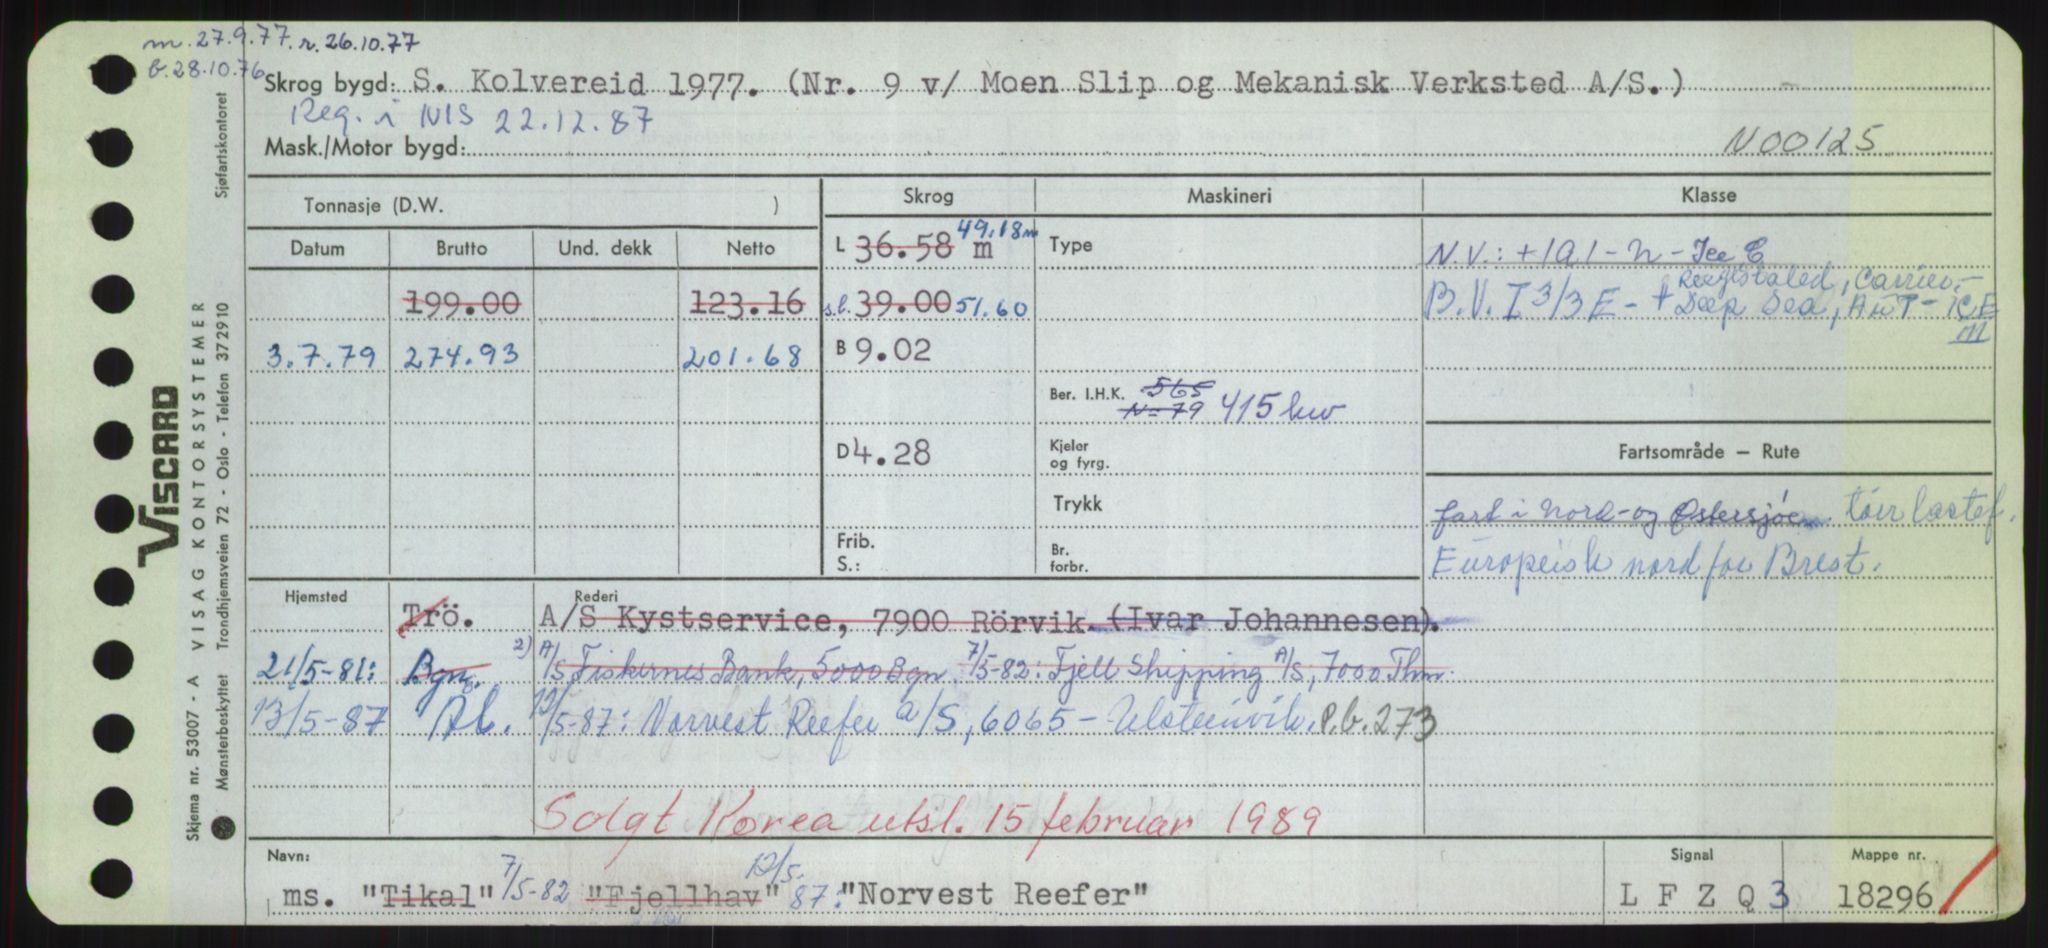 m. 27.9.77. r. 26.10.77
b. 28.10.76
Skrog bygd: S. Kolvereid 1977. (Nr. 9 v/ Moen Slip og Mekanisk Verksted A/S.)
Reg. i NIS 22.12.87
Mask./Motor bygd:
N00125
Tonnasje (D.W. )
Skrog
Maskineri
Klasse
Datum Brutto Und. dekk Netto
L 36.58 m 49.18 m
Type
N.V.: +1A1-N-Ice C
199.00 123.16
s.l. 39.00 51.60
B.V. I 3/3 E - + Deep Sea, AUT-ICE
III
3.7.79 274.93 201.68
B 9.02
Ber. I.H.K. 565
N=79 415 kw
D 4.28
Kjeler
og fyrg.
Fartsområde — Rute
Trykk
fart i Nord-og Østersjøen. tørrlastef.
Frib.
S.:
Br.
forbr.
Europeisk nord for Brest.
Hjemsted
Rederi
Trö. A/S Kystservice, 7900 Rörvik. (Ivar Johannesen).
21/5-81: Bgn. 2) A/S Fiskernes Bank, 5000 Bgn 7/5-82: Fjell Shipping A/S, 7000 Thm.
13/5-87 Ål. 13/5-87: Norvest Reefer A/S, 6065 - Ulsteinvik. P.b. 273
Solgt Korea utsl. 15 februar 1989
Navn:
Signal
Mappe nr.
ms. "Tikal" 7/5-82 "Fjellhav" 12/5-87: "Norvest Reefer"
L F Z Q 3
18296
VISCARD
Skjema nr. 53007 - A VISAG KONTORSYSTEMER
Mønsterbeskyttet Trondhjemsveien 72 - Oslo - Telefon 372910 Sjøfartskontoret